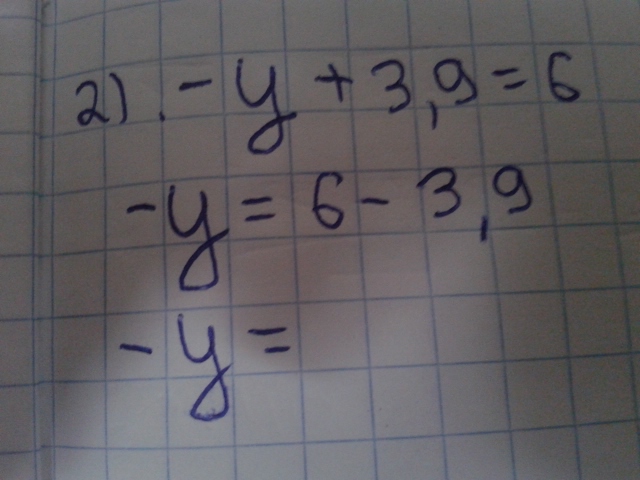 2). -y + 3,9 = 6
-y = 6 - 3,9
-y =